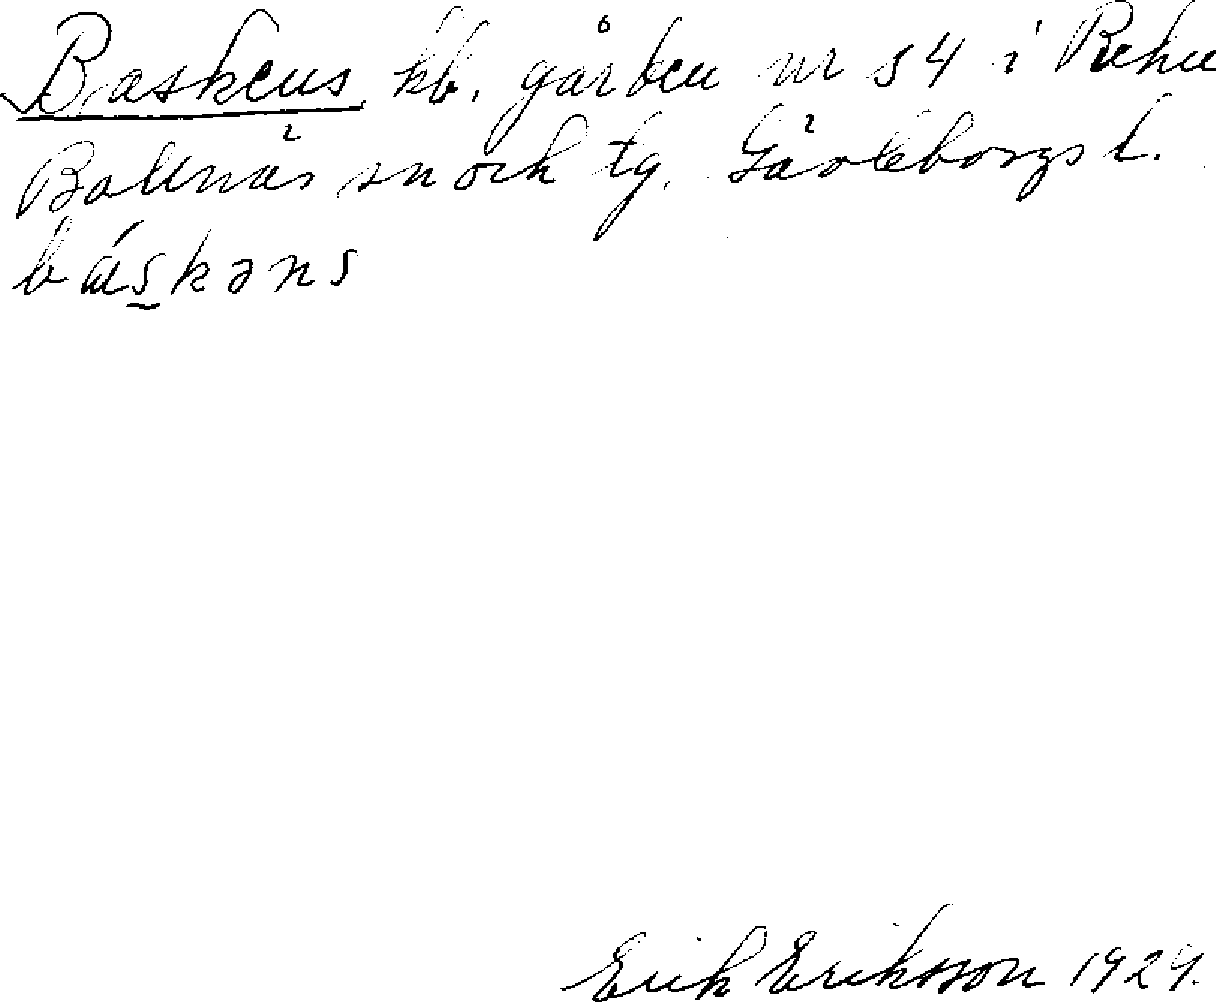 Baskens kb. gården nr 54 i Rehn
Bollnäs sn och tg. Gävleborgs l.
báskəns
Erik Eriksson 1929.